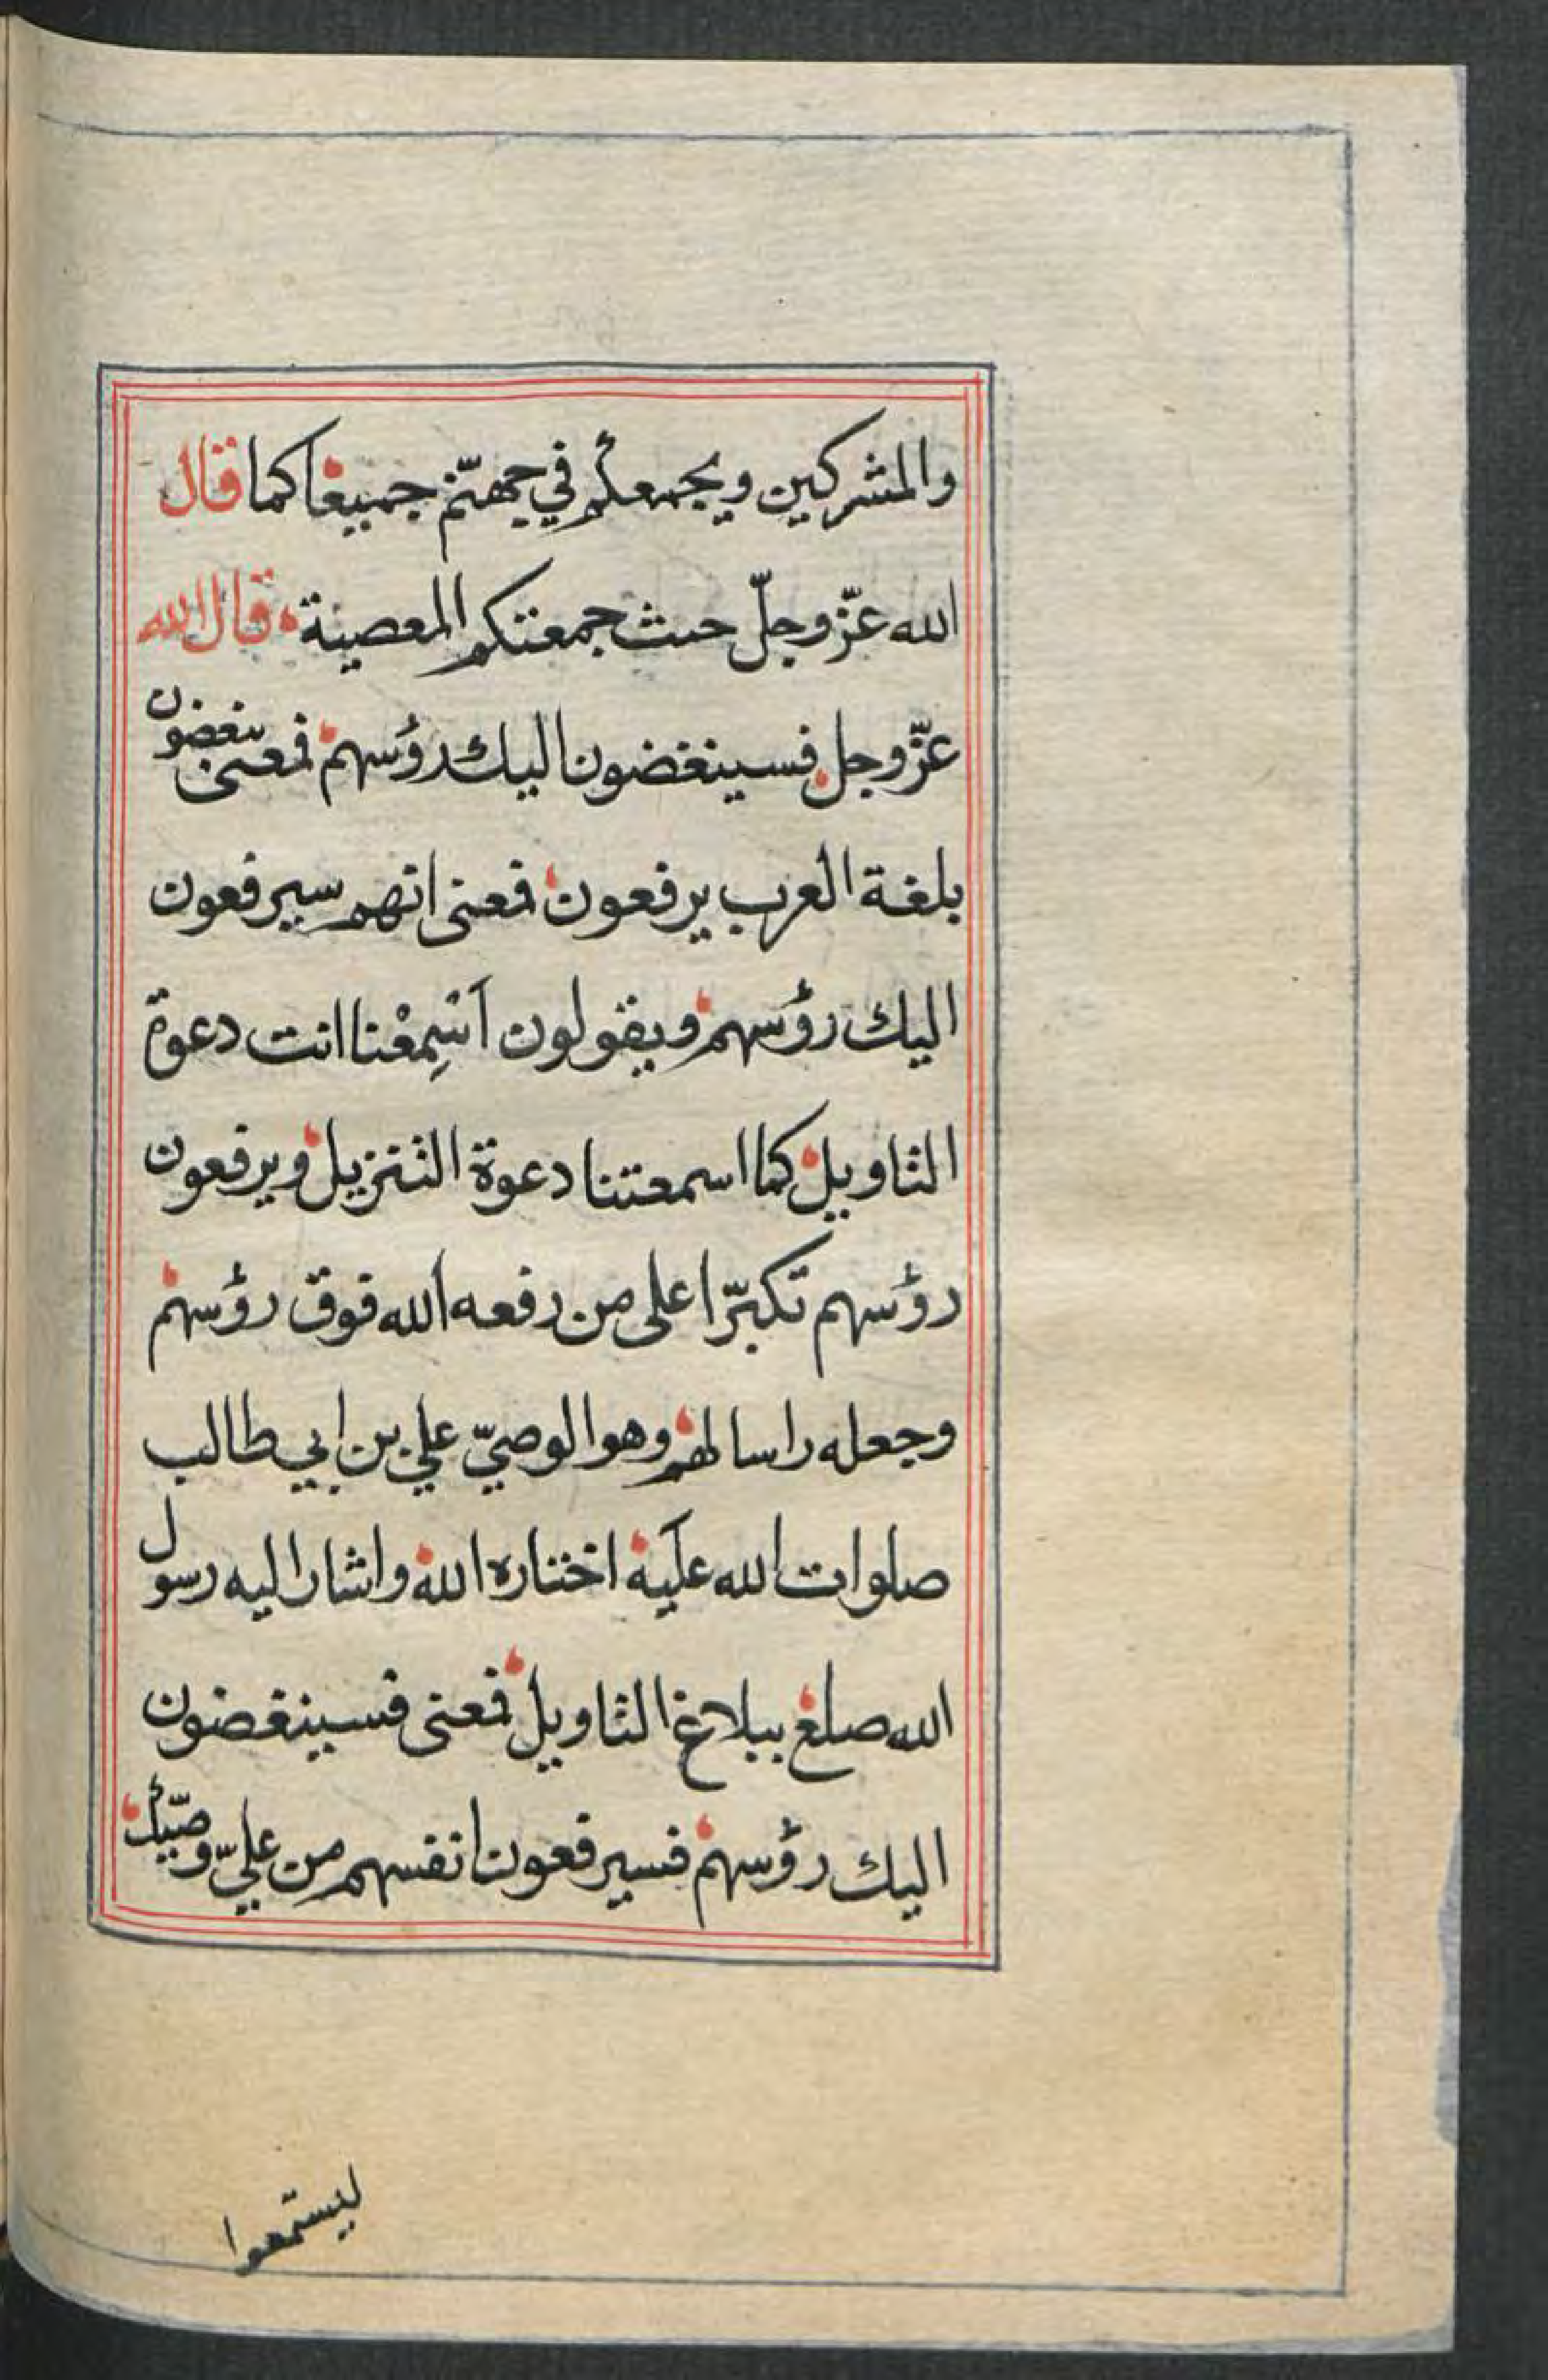 والمشركين ويجمعكم في جهنّم جميعا كما قال
الله عزّ وجلّ حيث جمعتكم المعصية قال الله
عزّ وجل فسينغضون اليك رؤسهم فمعنى ينغضون
بلغة العرب يرفعون فمعنى انهم سيرفعون
اليك رؤسهم ويقولون أسْمِعْنا انت دعوة
التاويل كما اسمعتنا دعوة التنزيل ويرفعون
رؤسهم تكبّرا على من رفعه الله فوق رؤسهم
وجعله راسا لهم وهو الوصيّ علي بن ابي طالب
صلوات الله عليه اختاره الله واشار اليه رسول
الله صلع ببلاغ التاويل فمعنى فسينغضون
اليك رؤسهم فسيرفعون انفسهم من عليّ وصيّك
ليستمعوا